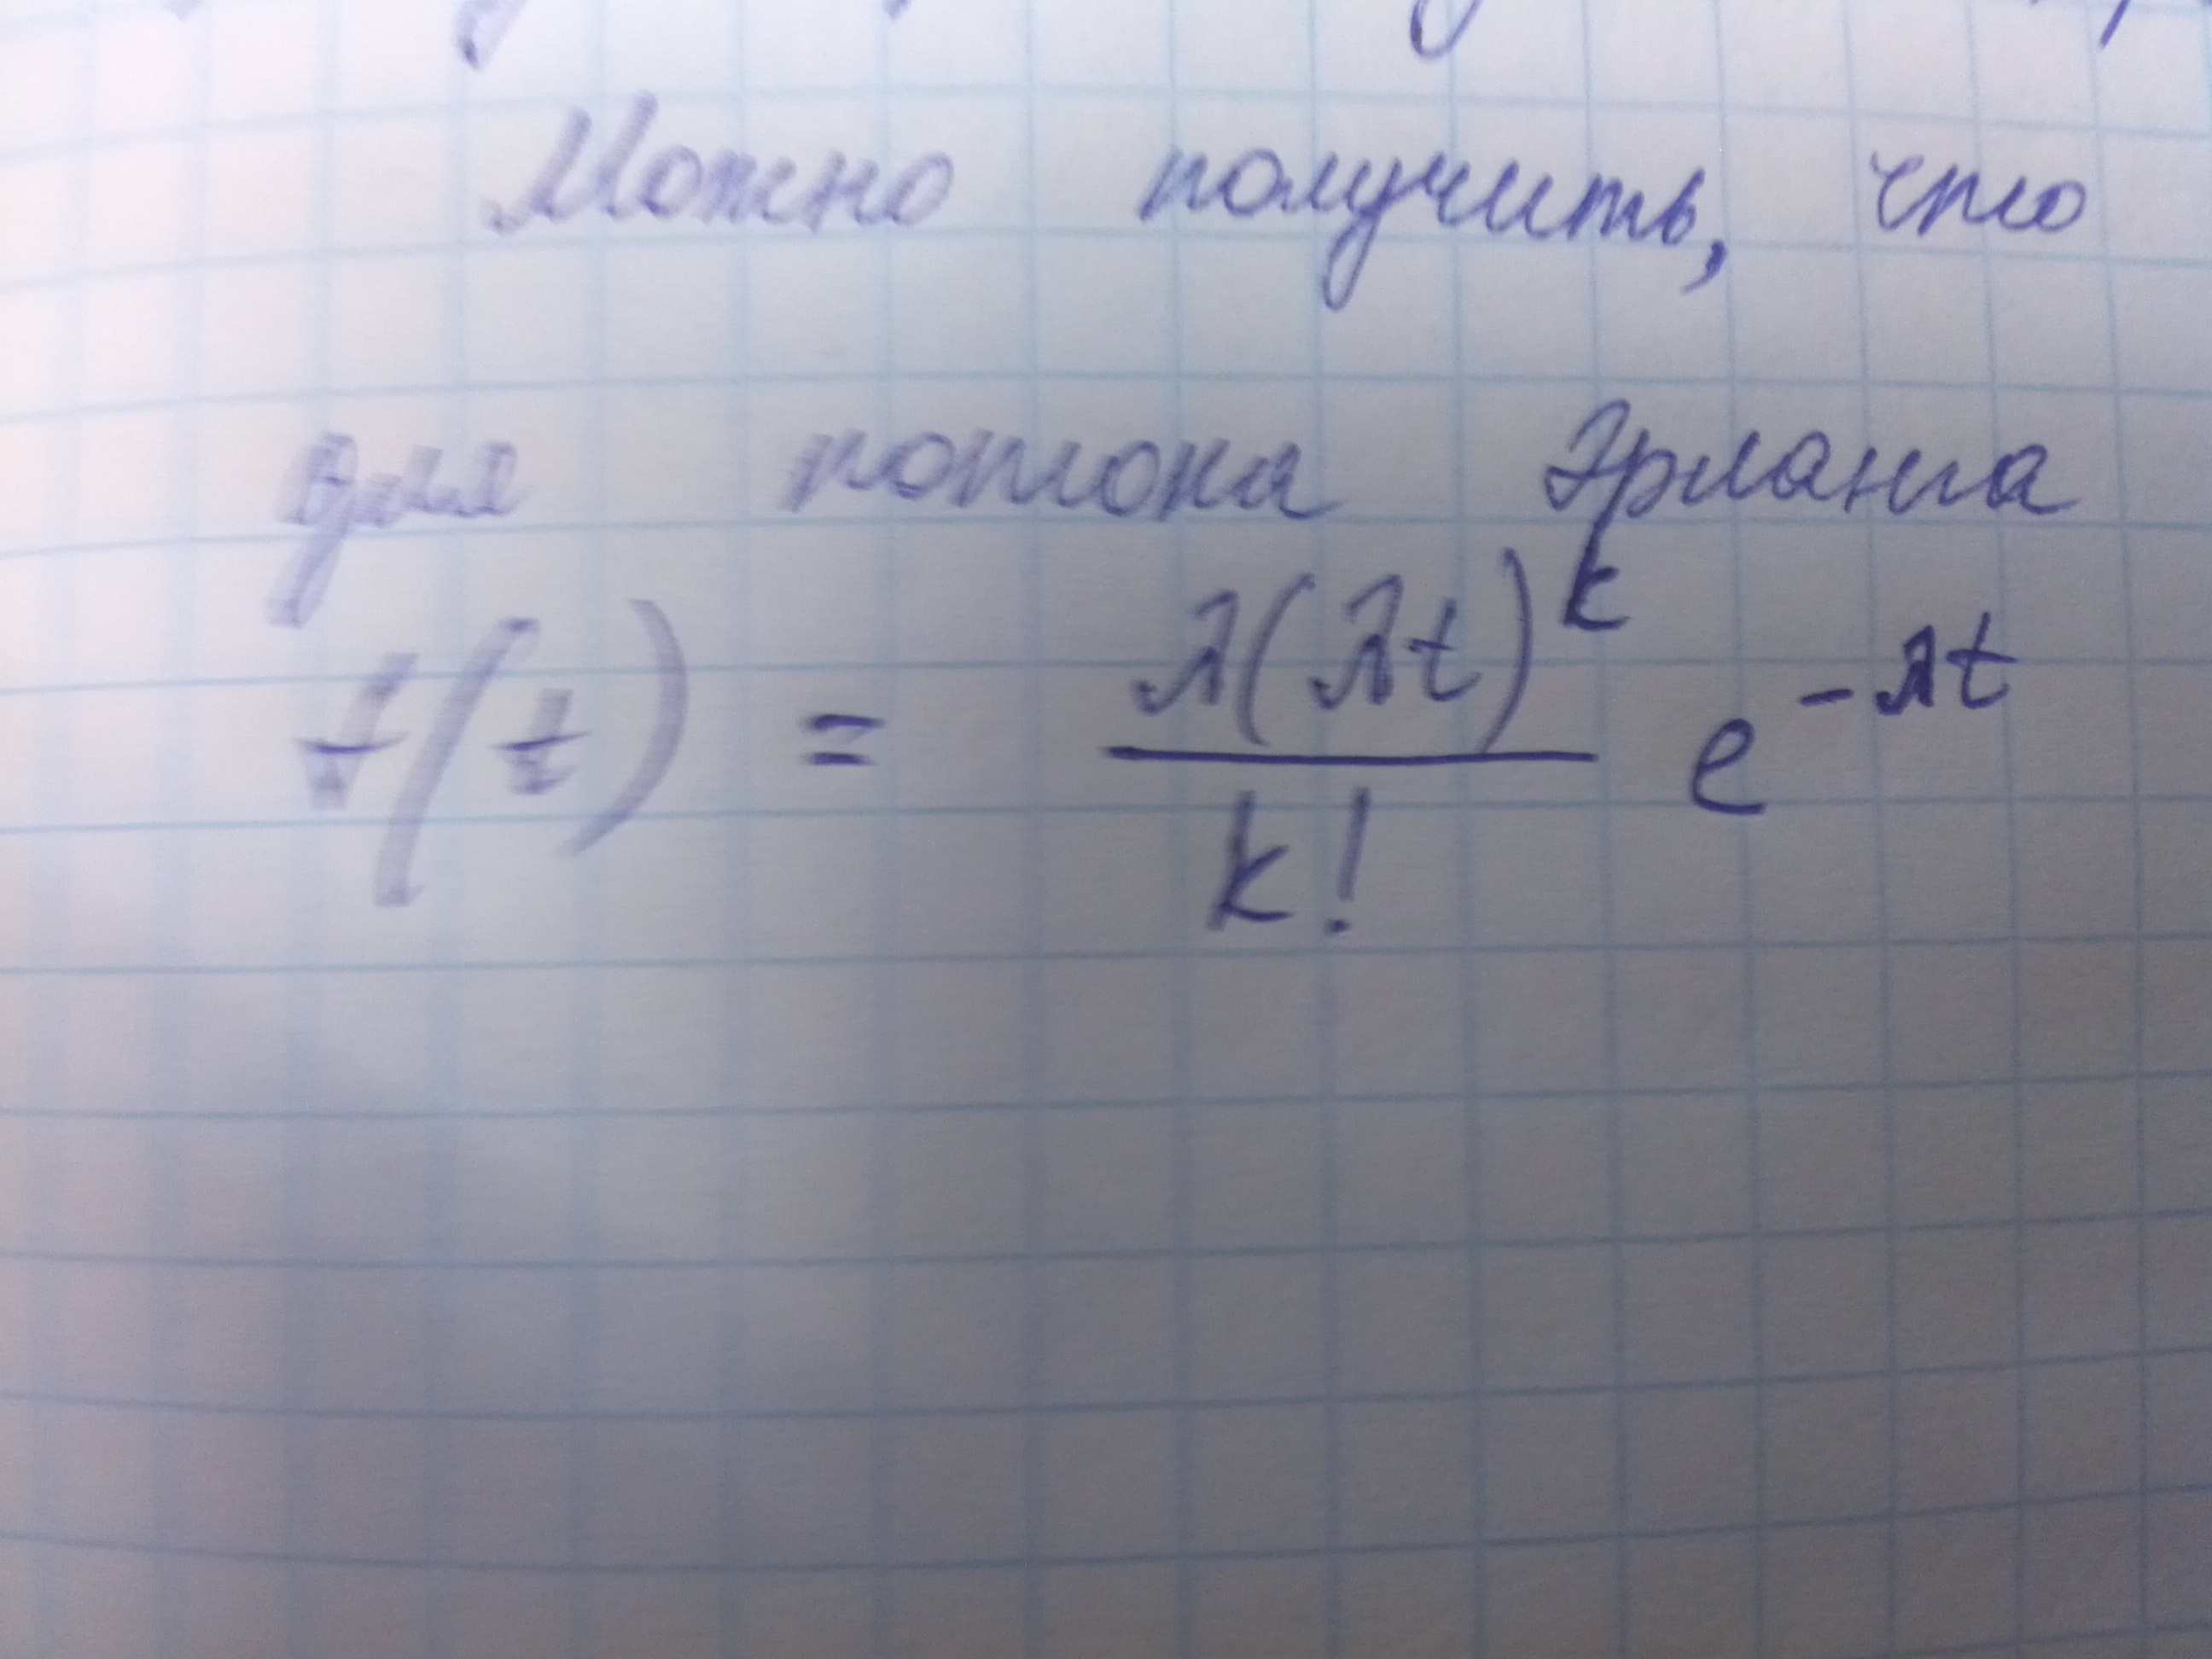 Можно получить, что
для потока Эрланга
f(t) = λ(λt)^k / k! e^{-λt}